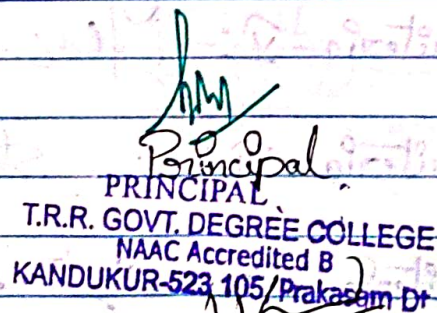 Principal
PRINCIPAL
T.R.R. GOVT. DEGREE COLLEGE
NAAC Accredited B
KANDUKUR-523 105, Prakasam Dt